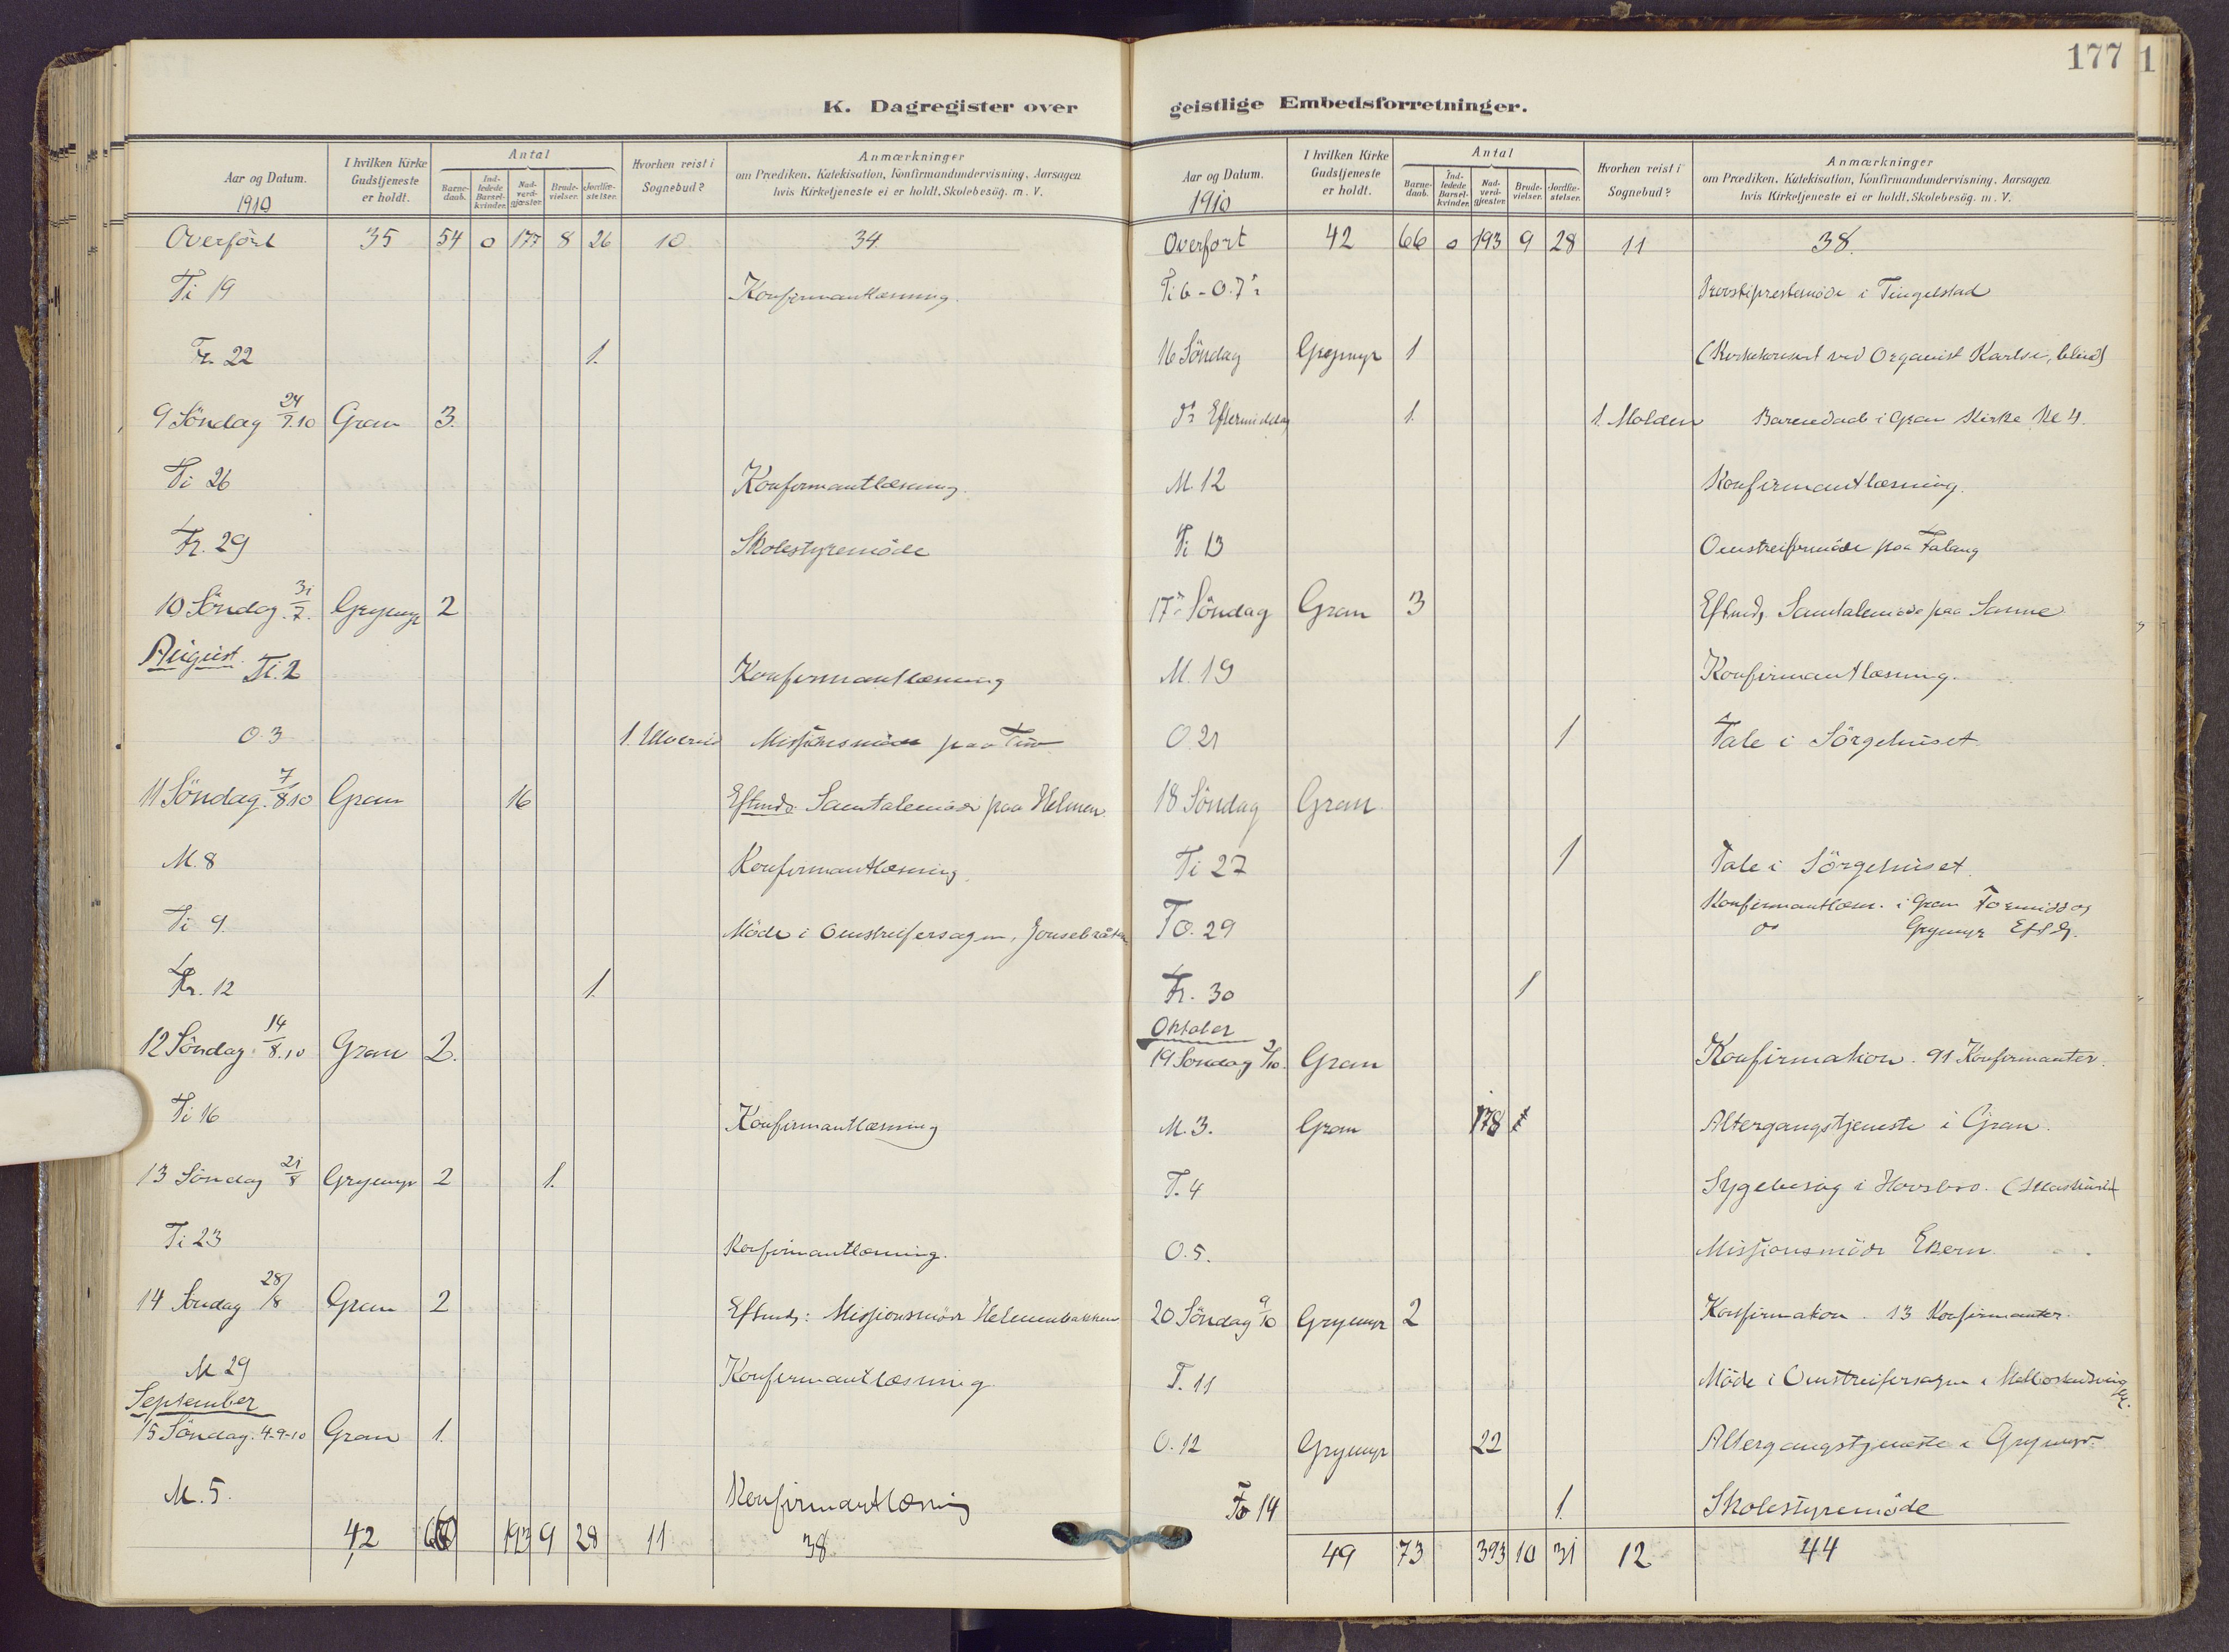 177
1
K. Dagregister over
Aar og Datum.
1910
I hvilken Kirke Gudstjeneste er holdt.
Antal
Barne-daab.
Ind-ledede Barsel-kvinder.
Nad-verd-gjæster.
Brude-vielser.
Jordfæ-stelser.
Hvorhen reist i Sognebud?
Anmærkninger
om Prædiken, Katekisation, Konfirmandundervisning, Aarsagen
hvis Kirketjeneste ei er holdt, Skolebesög. m. V.
Overført 35 54 0 177 8 26 10 34
Ti 19 Konfirmantlæsning.
Fr. 22 1.
9 Söndag 24/7.10 Gran 3.
Ti 26 Konfirmantlæsning.
Fr. 29 Skolestyremöde
10 Söndag 31/7. Grymyr 2
August.
Ti. 2 Konfirmantlæsning
O. 3 1. Missionsmöde paa
11 Söndag. 7/8 10 Gran 16 Eftmdg. Samtalemöde paa Helmen.
M. 8 Konfirmantlæsning.
Ti 9. Möde i Omstreifersagen,
Fr. 12 1.
12 Söndag 14/8.10 Gran 2.
Ti 16 Konfirmantlæsning
13 Söndag 21/8 Grymyr 2 1.
Ti 23 Konfirmantlæsning.
14 Söndag 28/8 Gran 2 Eftmdg: Missionsmöde Helmenbakken
M 29 Konfirmantlæsning
September
15 Söndag. 4-9-10 Gran 1.
M. 5. Konfirmantlæsning
42 66 193 9 28 11 38
geistlige Embedsforretninger.
Aar og Datum.
1910
I hvilken Kirke Gudstjeneste er holdt.
Antal
Barne-daab.
Ind-ledede Barsel-kvinder.
Nad-verd-gjæster.
Brude-vielser.
Jordfæ-stelser.
Hvorhen reist i Sognebud?
Anmærkninger
om Prædiken, Katekisation, Konfirmandundervisning, Aarsagen
hvis Kirketjeneste ei er holdt, Skolebesög. m. V.
Overført 42 66 0 193 9 28 11 38.
Ti 6 - O. 7 Provstiprestemöde i Tingelstad
16 Söndag Grymyr 1 (Kirkekonsert ved Organist Karlsen, blind)
Do Eftermiddag 1. 1. Molden Barnedaab i Gran Kirke Kl 4.
M. 12 Konfirmantlæsning.
Ti 13 Omstreifermöde paa Falang
17 Söndag Gran 3 Eftmdg. Samtalemöde paa Sanne
M. 19 Konfirmantlæsning.
O. 21 1 Tale i Sörgehuset.
18 Söndag Gran
Ti 27 1 Tale i Sörgehuset.
TO. 29 Konfirmantlæsn. i Gran Formiddag
do Grymyr Eftdg.
Fr. 30 1
Oktober
19 Söndag 2/10. Gran Konfirmation. 91 Konfirmanter.
M. 3. Gran 178 Altergangstjeneste i Gran.
T. 4 Sygebesög i
O. 5. Missionsmöde Ekern
20 Söndag 9/10 Grymyr 2 Konfirmation. 13 Konfirmanter.
T. 11 Möde i Omstreifersagen i
O. 12 Grymyr 22 Altergangstjeneste i Grymyr.
Fr 14 1. Skolestyremöde
49 73 393 10 31 12 44